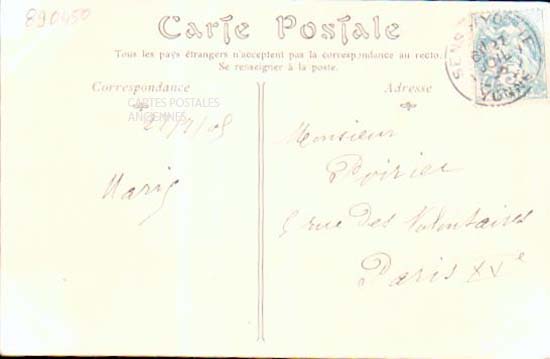 890450
Carte Postale
Tous les pays étrangers n'acceptent pas la correspondance au recto.
Se renseigner à la poste.
Correspondance
CARTES POSTALES
ANCIENNES
21/7/05
Marie
Adresse
Monsieur
Poirier
5 rue des Volontaires
Paris XVe
SENS
YONNE